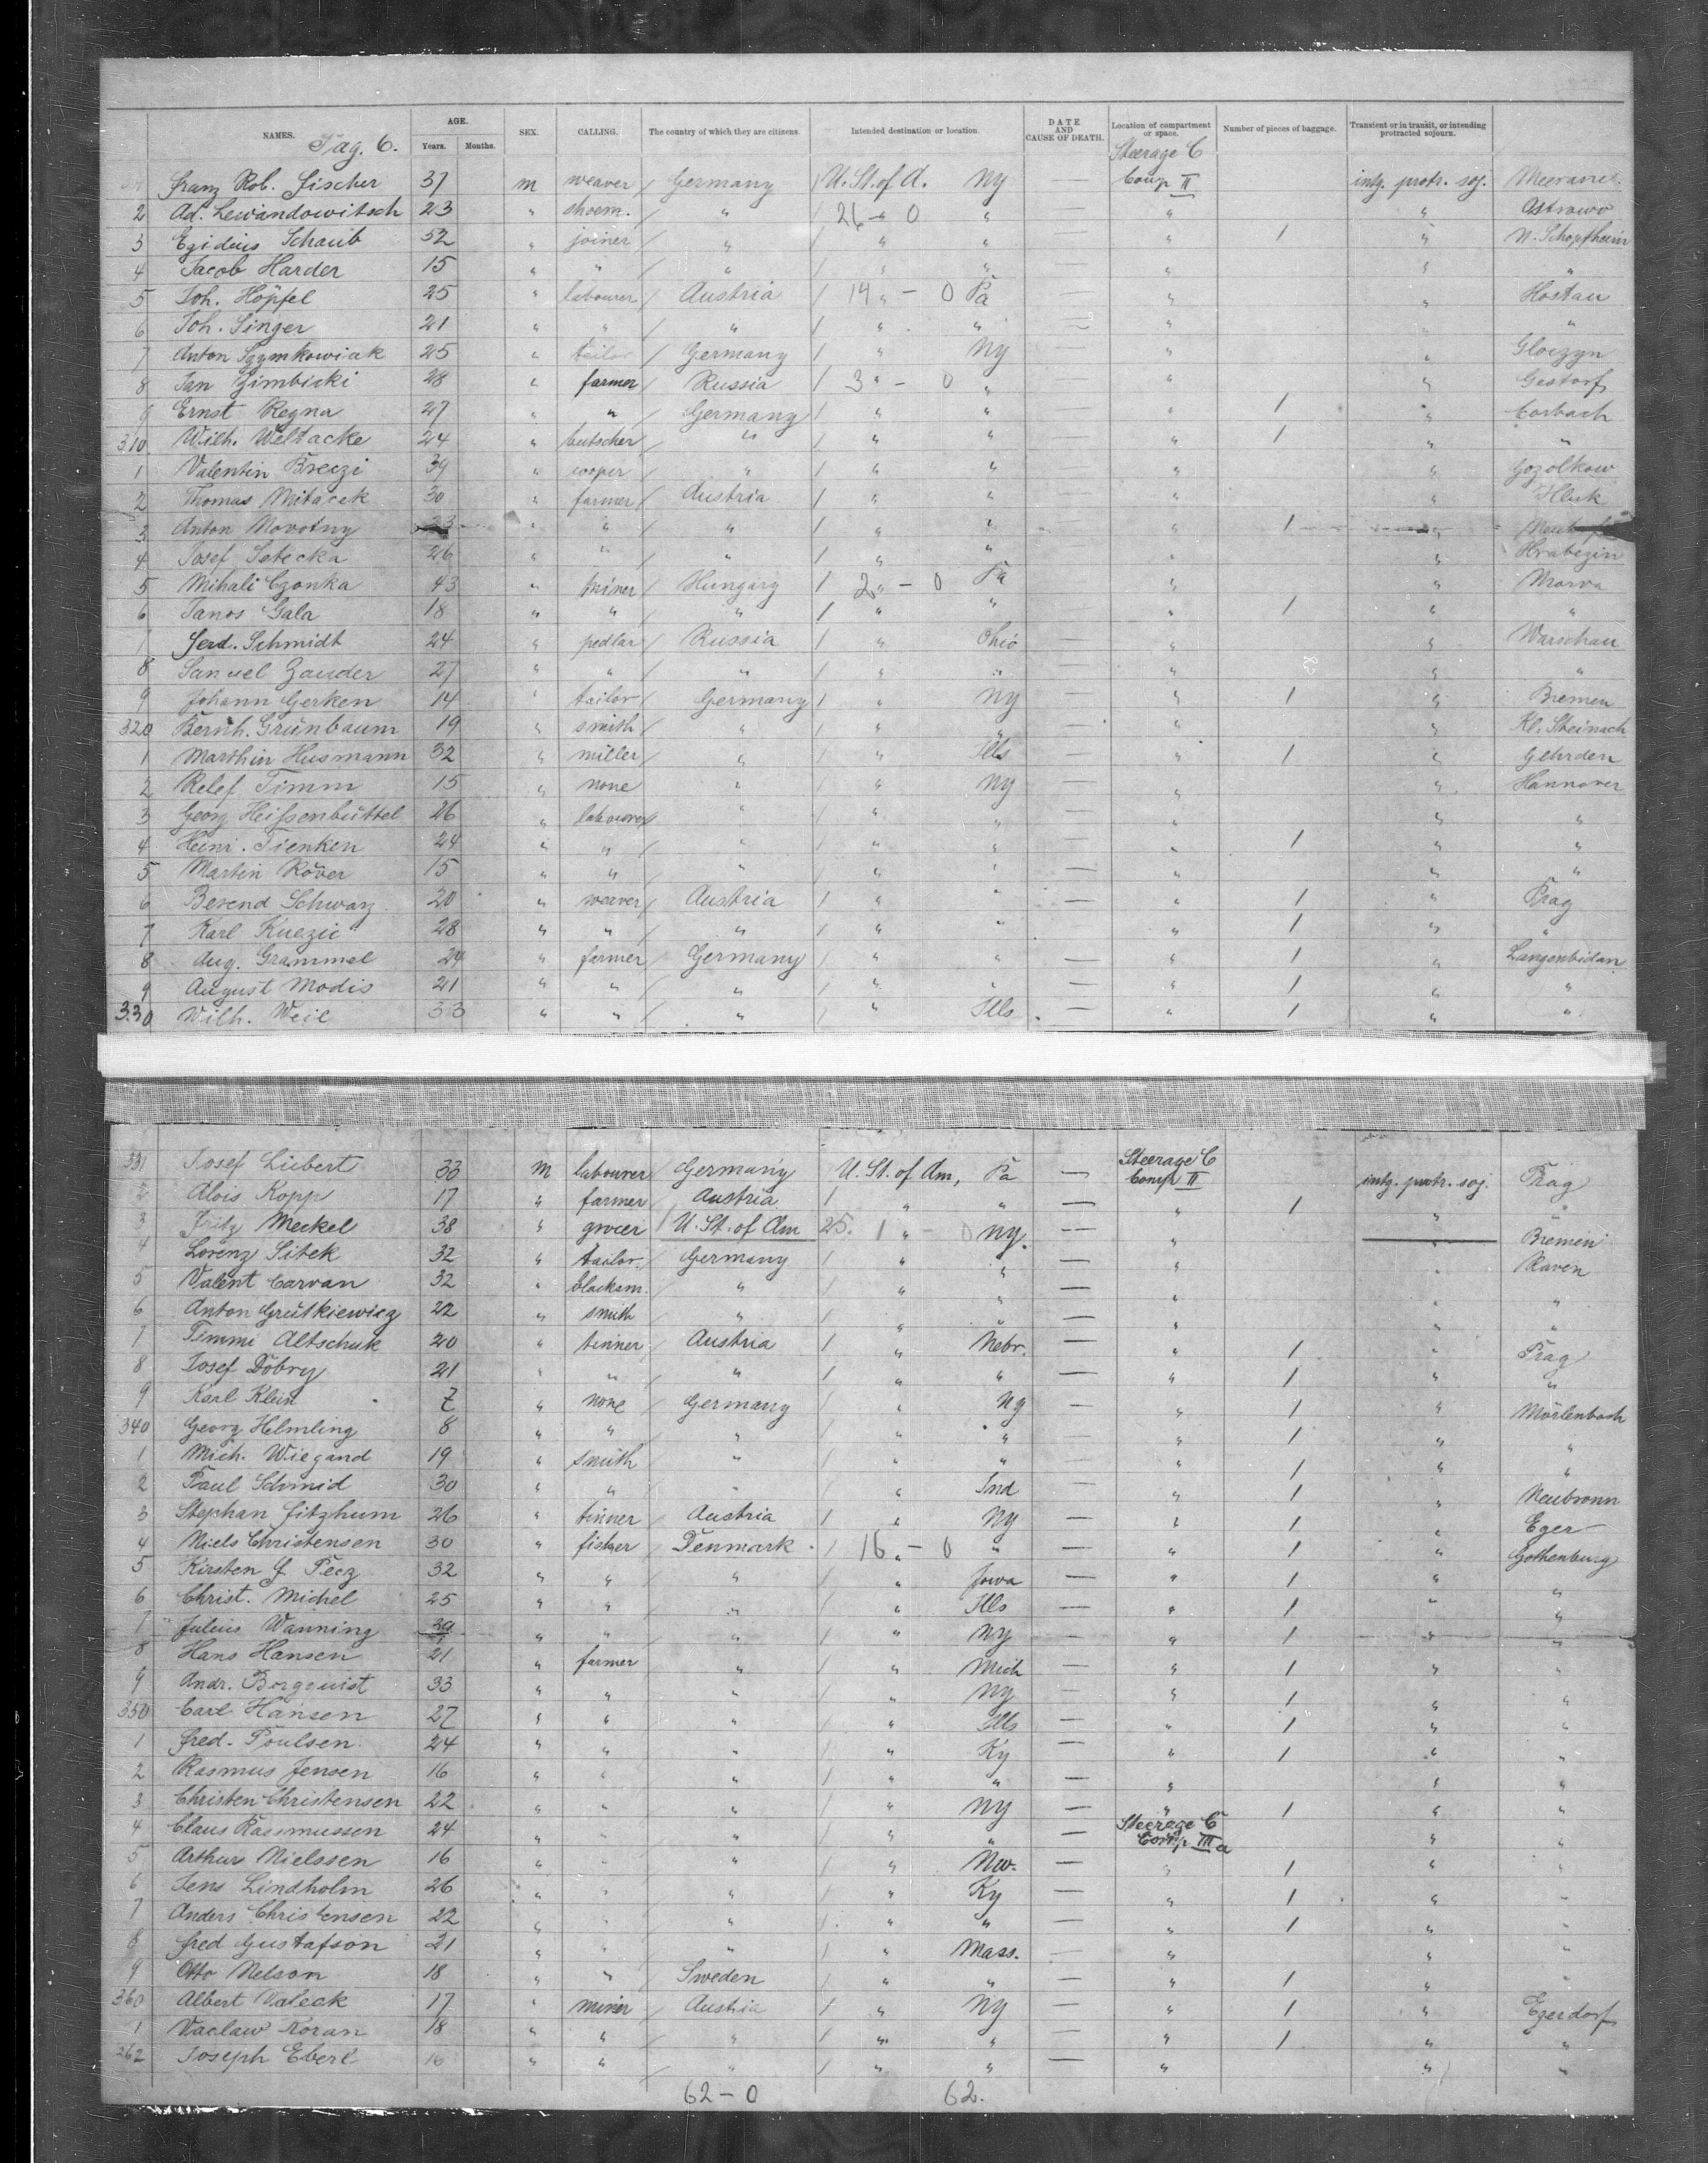 NAMES. AGE. SEX. CALLING. The country of which they are citizens. Intended destination or location. DATE AND CAUSE OF DEATH. Location of compartment or space. Number of pieces of baggage. Transient or in transit, or intending protracted sojourn.
Years. Months.
Pag. 6. Steerage C
Franz Rob. Fischer 37 m weaver / Germany / U. St. of A. Ny — Comp II intg. protr. soj.
2 Ad. Lewandowitsch 23 " shoem. / " / 26 " 0 " — " " Ostrowo
3 Egidius Schaub 52 " joiner / " / " " — " 1 " N. Schopfheim
4 Jacob Harder 15 " " / " / " " — " " "
5 Joh. Höpfel 25 " labourer / Austria / 14 " — 0 Pa — " " Hostau
6 Joh. Singer 21 " " / " / " " — " " "
7 Anton Szymkowiak 25 " tailor / Germany / " Ny — " " Gloczyn
8 Jan Zimbicki 28 " farmer / Russia / 3 " — 0 " — " " Gestorf
9 Ernst Regna 27 " " / Germany / " " — " 1 " Corbach
310 Wilh. Weltacke 24 " butscher / " / " " — " 1 " "
1 Valentin Breczi 39 " cooper / " / " " — " " Gozolkow
2 Thomas Mitacek 30 " farmer / Austria / " " — " " Hluk
3 Anton Novotny 23 " " / " / " " — " 1 "
4 Josef Setecka 26 " " / " / " " — " " Hrabezin
5 Mihali Czonka 43 " miner / Hungary / 2 " — 0 Pa — " " Morva
6 Janos Gala 18 " " / " / " " — " 1 " "
7 Ferd. Schmidt 24 " pedlar / Russia / " Ohio — " " Warschau
8 Samuel Zauder 27 " " / " / " " — " " "
9 Johann Gerken 14 " tailor / Germany / " Ny — " 1 " Bremen
320 Bernh. Grünbaum 19 " smith / " / " " — " " Kl. Steinach
1 Marthin Husmann 32 " miller / " / " Ills — " 1 " Gehrden
2 Relef Timm 15 " none " / " Ny — " " Hannover
3 Georg Heißenbüttel 26 " labourer / " / " " — " " "
4 Heinr. Tienken 24 " " / " / " " — " 1 " "
5 Martin Röver 15 " " / " / " " — " " "
6 Berend Schwarz 20 " weaver / Austria / " " — " 1 " Prag
7 Karl Kuczic 28 " " / " / " " — " 1 " "
8 Aug. Grammel 24 " farmer / Germany / " " — " 1 " Langenbidan
9 August Modis 21 " " / " / " " — " 1 " "
330 Wilh. Weil 33 " " / " / " Ills — " 1 " "
331 Josef Liebert 33 m labourer / Germany U. St. of Am, Pa — Steerage C Comp II intg. protr. soj. Prag
2 Alois Kopp 17 " farmer / Austria / " " — " 1 " "
3 Fritz Meckel 38 " grocer / U. St. of Am 25. 1 " — 0 Ny. — " " Bremen
4 Lorenz Sitek 32 " tailor / Germany / " " — " " Raven
5 Valent Carvan 32 " blacksm. / " / " " — " " "
6 Anton Grutkiewicz 22 " smith / " / " " — " " "
7 Timmi Altschuk 20 " tinner / Austria / " Nebr. — " 1 " Prag
8 Josef Dobry 21 " " / " / " " — " 1 " "
9 Karl Klein 7 " none / Germany / " Ny — " 1 " Mörlenbach
340 Georg Helmling 8 " " / " / " " — " 1 " "
1 Mich. Wiegand 19 " smith / " / " " — " 1 " "
2 Paul Schmid 30 " " / " / " Ind — " 1 " Neubronn
3 Stephan Fitzhum 26 " tinner / Austria / " Ny — " 1 " Eger
4 Niels Christensen 30 " fisher / Denmark / 16 " — 0 " — " 1 " Gothenburg
5 Kirsten G Pecz 32 " " / " / " Iowa — " 1 " "
6 Christ. Michel 25 " " / " / " Ills — " 1 " "
7 Julius Wanning 39 " " / " / " Ny — " 1 " "
8 Hans Hansen 21 " farmer / " / " Mich — " 1 " "
9 Andr. Borgquist 33 " " / " / " Ny — " 1 " "
350 Carl Hansen 27 " " / " / " Ills — " 1 " "
1 Fred. Poulsen 24 " " / " / " Ky — " 1 " "
2 Rasmus Jensen 16 " " / " / " " — " " "
3 Christen Christensen 22 " " / " / " Ny — " 1 " "
4 Claus Rasmussen 24 " " / " / " " — Steerage C Comp III a " "
5 Arthur Nielssen 16 " " / " / " Nw. — " 1 " "
6 Jens Lindholm 26 " " / " / " Ky — " 1 " "
7 Anders Christensen 22 " " / " / " " — " 1 " "
8 Fred Gustafson 21 " " / " / " Mass. — " " "
9 Otto Nelson 18 " " / Sweden / " " — " 1 " "
360 Albert Valeck 17 " miner / Austria / " Ny — " 1 " Egerdorf
1 Vaclaw Koran 18 " " / " / " " — " 1 " "
362 Joseph Eberl 16 " " / " / " " — " " "
62 — 0 62.